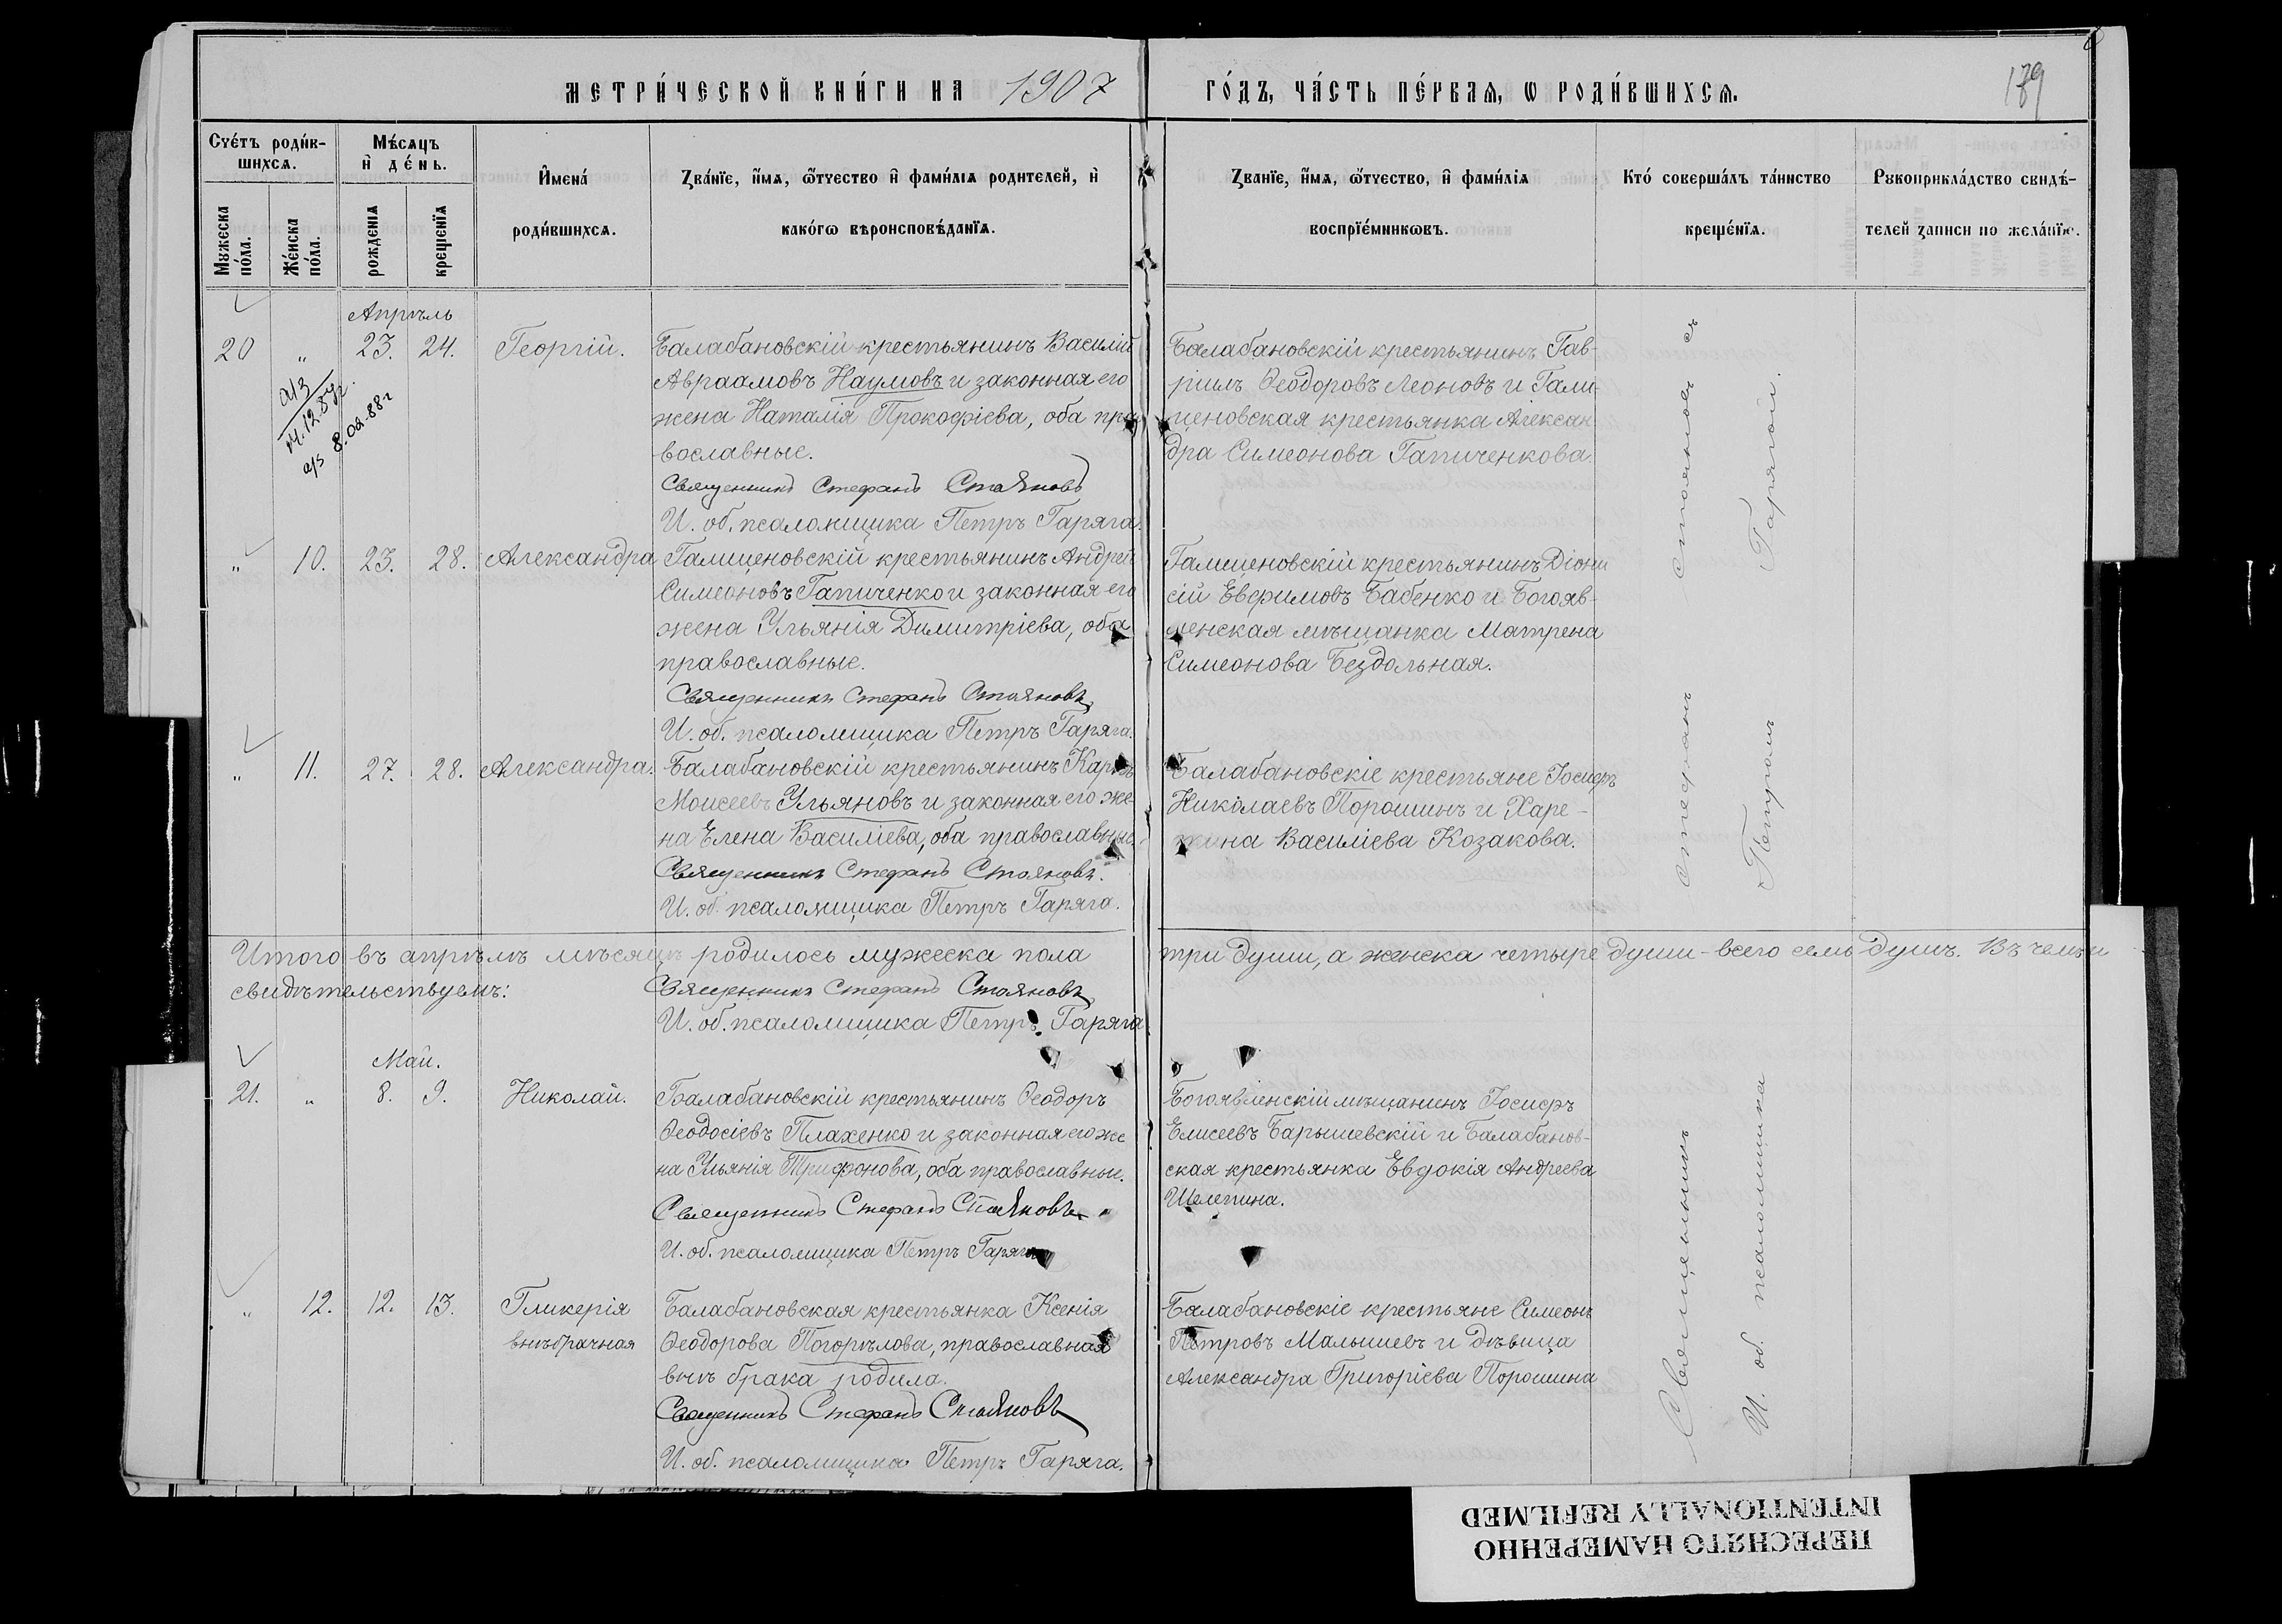 МЕТРИ́ЧЕСКОЙ КНИ́ГИ НА 1907
ГО́ДЪ, ЧА́СТЬ ПЕ́РВАѦ, Ѡ РОДИ́ВШИХСѦ.
179
Сче́тъ роди́в-
шихсѧ.
Мꙋжеска по́ла.
Же́нска по́ла.
Мѣ́сѧцъ
и҆ де́нь.
рожденіѧ
крещенїѧ
И҆мена́
роди́вшихсѧ.
Зва́нїе, и҆́мѧ, ѻ҆́тчество и҆ фами́лїѧ родителей, и҆
како́гѡ вѣроисповѣ́данїѧ.
Званїе, и҆́мѧ, ѻ҆́тчество, и҆ фами́лїѧ
воспрїе́мникѡвъ.
Кто́ соверша́лъ та́инство
креще́нїѧ.
Рꙋкоприкла́дство свидѣ́-
телей записи по жела́нїю.
Апрѣль
20 „ 23. 24. Георгій.
Балабановскій крестьянинъ Василій
Авраамовъ Наумовъ и законная его
жена Наталія Прокофіева, оба пра
вославные.
Священникъ Стефанъ Стояновъ
И. об. псаломщика Петръ Гаряга.
Балабановскій крестьянинъ Гав-
ріилъ Ѳеодоровъ Леоновъ и Гали-
ценовская крестьянка Алексан
дра Симеонова Гапиченкова.
а/з
8.02.88г
„ 10. 23. 28. Александра
Галиценовскій крестьянинъ Андрей
Симеоновъ Гапиченко и законная его
жена Ульянія Димитріева, оба
православные.
Священникъ Стефанъ Стояновъ
И. об. псаломщика Петръ Гаряга.
Галиценовскій крестьянинъ Діони
сій Евфимовъ Бабенко и Богояв-
ленская мѣщанка Матрена
Симеонова Бездольная.
„ 11. 27. 28. Александра.
Балабановскій крестьянинъ Карпъ
Моисеевъ Ульяновъ и законная его же
на Елена Василіева, оба православные.
Священникъ Стефанъ Стояновъ.
И. об. псаломщика Петръ Гаряга.
Балабановскіе крестьяне Іосифъ
Николаевъ Порошинъ и Харе-
жина Василіева Козакова.
Итого въ апрѣлѣ мѣсяцѣ родилось мужеска пола три души, а женска четыре души - всего семь душъ. Въ чемъ и
свидѣтельствуемъ:
Священникъ Стефанъ Стояновъ
И. об. псаломщика Петръ Гаряга
Май.
21. „ 8. 9. Николай.
Балабановскій крестьянинъ Ѳеодоръ
Ѳеодосіевъ Плахенко и законная его же
на Ульянія Трифонова, оба православные.
Священникъ Стефанъ Стояновъ
И. об. псаломщика Петръ Гаряга
Богоявленскій мѣщанинъ Іосифъ
Елисеевъ Барышевскій и Балабанов-
ская крестьянка Евдокія Андреева
Шелепина.
„ 12. 12. 13. Гликерія
внѣбрачная
Балабановская крестьянка Ксенія
Ѳеодорова Погорѣлова, православная
внѣ брака родила.
Священникъ Стефанъ Стояновъ
И. об. псаломщика Петръ Гаряга.
Балабановскіе крестьяне Симеонъ
Петровъ Малышевъ и дѣвица
Александра Григоріева Порошина
Священникъ Стефанъ Стояновъ съ
И. об. псаломщика Петромъ Гарягой.
ПЕРЕСНЯТО НАМЕРЕННО
INTENTIONALLY REFILMED